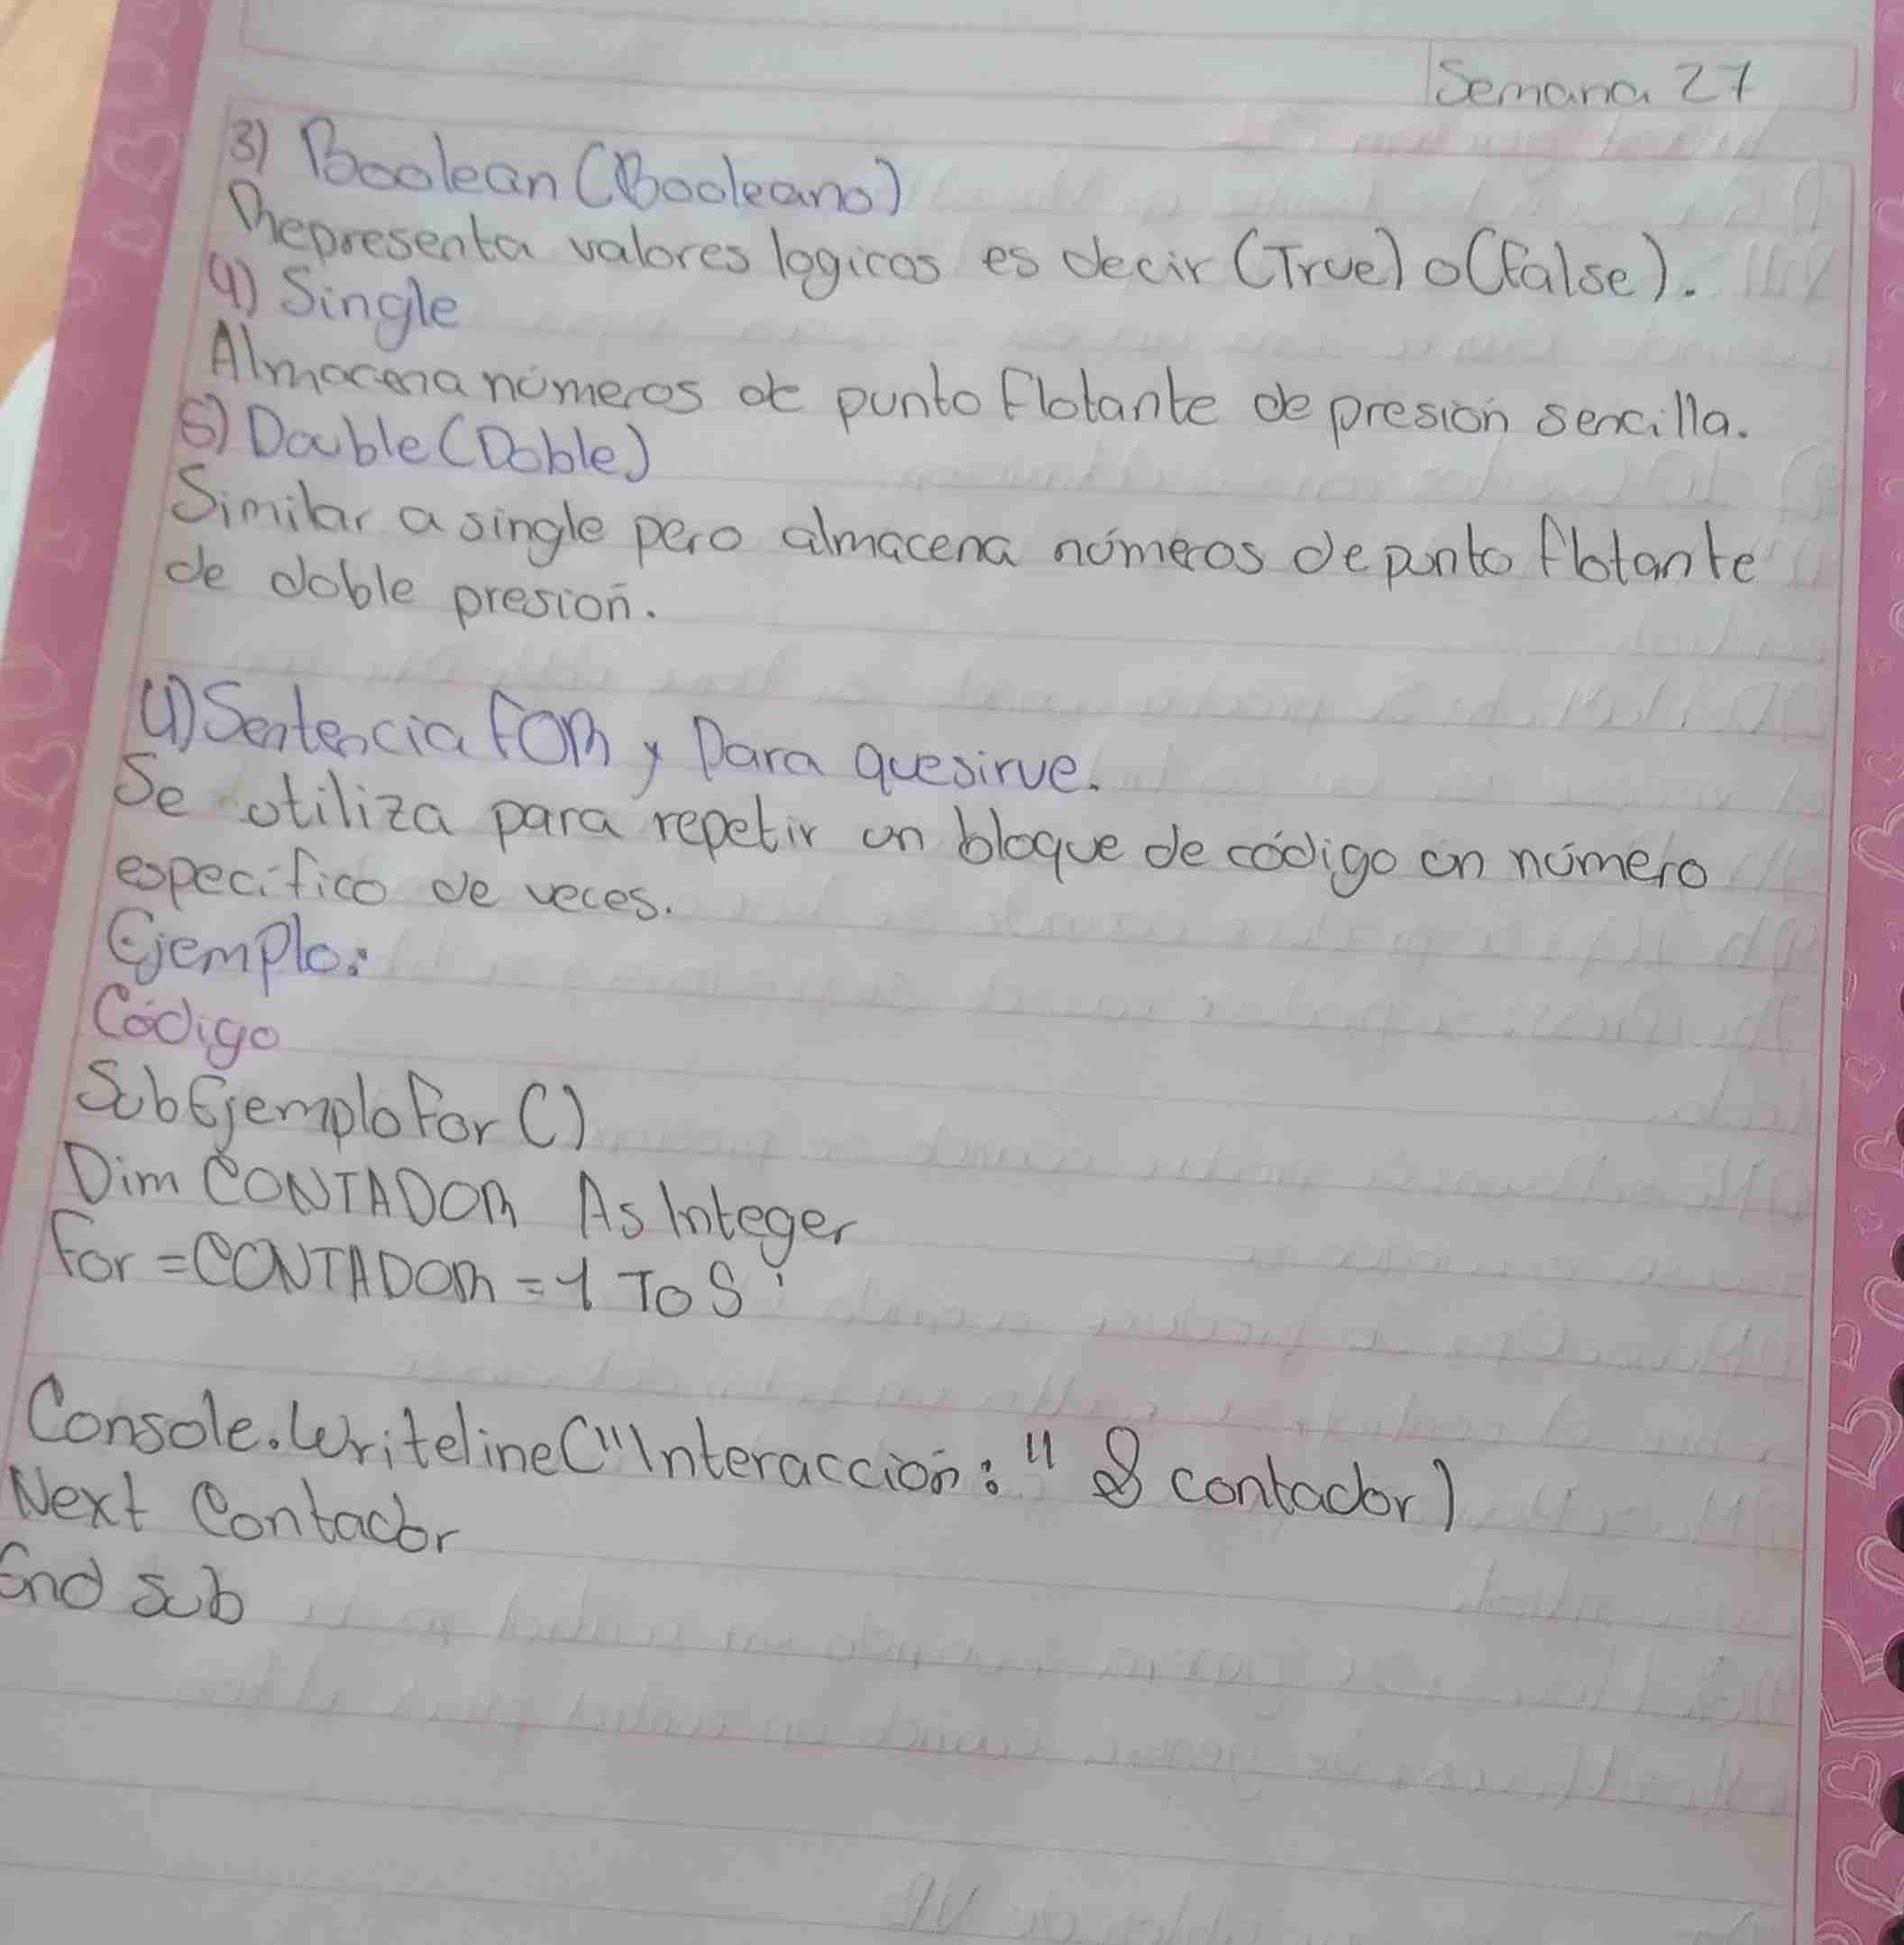 Semana 27
3) Boolean (Booleano)
Representa valores logicos es decir (True) o (False).
4) Single
Almacena números de punto flotante de presión sencilla.
5) Double (Doble)
Similar a single pero almacena números de punto flotante
de doble presión.
4) Sentencia FOR y Para que sirve.
Se utiliza para repetir un bloque de código un número
específico de veces.
Ejemplo:
Código
Sub Ejemplo For ()
Dim CONTADOR As Integer
For = CONTADOR = 1 To 5
Console.Writeline ("Interacción: " & contador)
Next Contador
End Sub